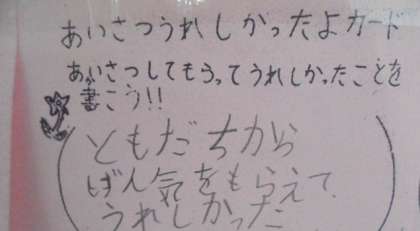 あいさつうれしかったよカード
あいさつしてもらってうれしかったことを
書こう!!
ともだちから
げん気をもらえて
うれしかった